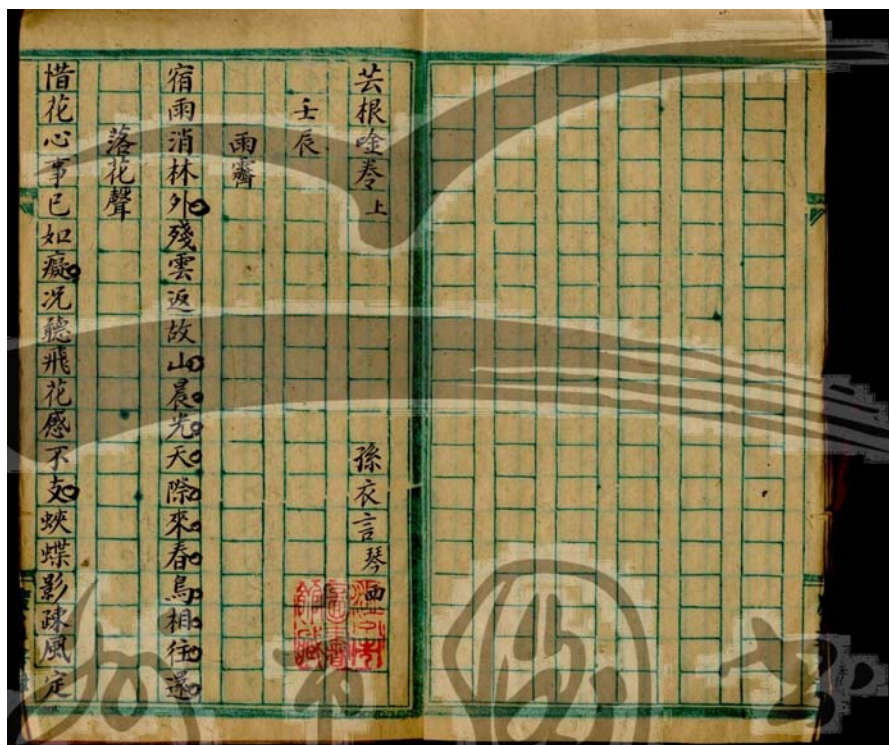 芸根唫卷上 孫衣言琴西
壬辰
雨霽
宿雨消林外殘雲返故山晨光天際來春鳥相往還
落花聲
惜花心事已如癡况聽飛花感不支蛺蝶影疎風定